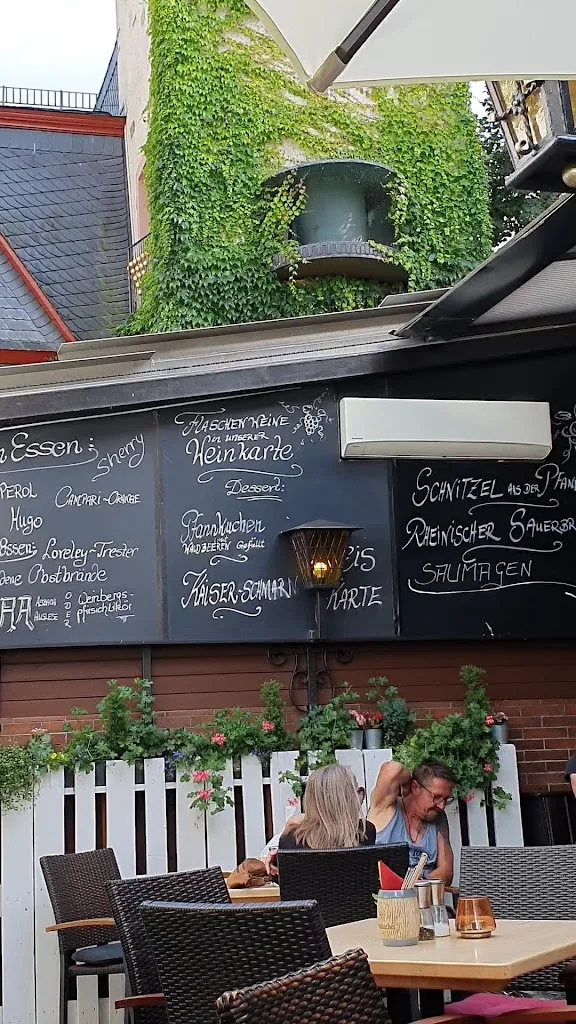 Essen:
Sherry
PEROL
CAMPARI-ORANGE
Hugo
Essen: Loreley-Trester
dene Obstbrände
Weinbergs-
pfirsichlikör
FLASCHENWEINE
in UNSERER
Weinkarte
Dessert:
Pfannkuchen
mit
WALDBEEREN Gefüllt
KAISER-SCHMARN
EIS
KARTE
SCHNITZEL AUS DER PFANN
RHEINISCHER SAUERBR
SAUMAGEN